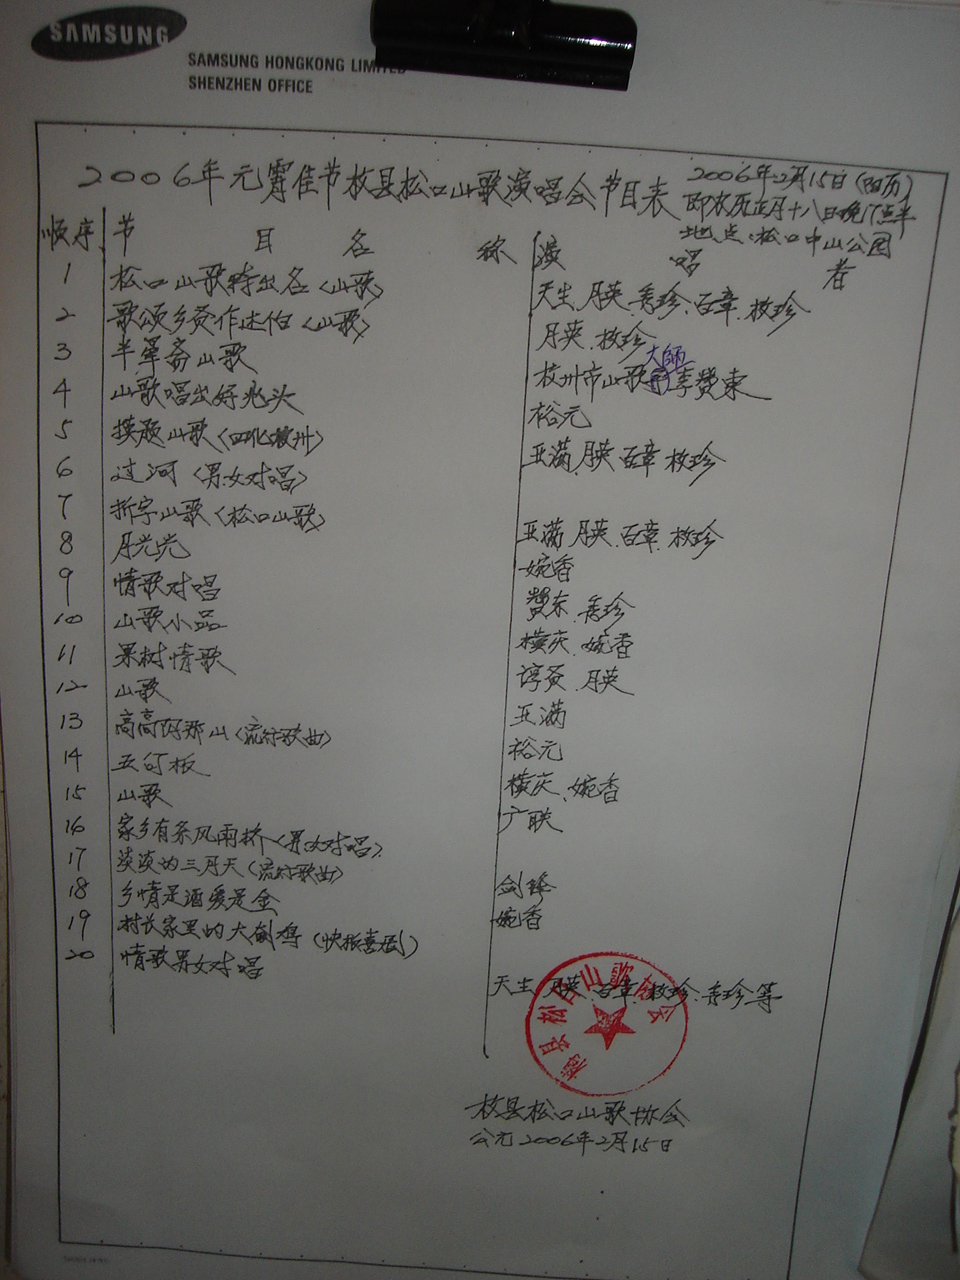 SAMSUNG
SAMSUNG HONGKONG LIMITED
SHENZHEN OFFICE
2006年元宵佳节枚县松口山歌演唱会节目表
2006年2月15日(阳历)
即农历正月十八日晚7点半
地点:松口中山公园
顺序 节 目 名 称 演 唱 者
1 松口山歌特出名〈山歌〉 天生.月英.秀珍.百章.枚珍
2 歌颂乡贤作述伯〈山歌〉 月英.枚珍
3 半草斋山歌 枚州市山歌大師李贊東
4 山歌唱出好兆头 裕元
5 摸题山歌〈四化枚州〉 亚满.月英.百章.枚珍
6 过河〈男女对唱〉
7 拆字山歌〈松口山歌〉 亚满.月英.百章.枚珍
8 月光光 婉香
9 情歌对唱 贊东.秀珍
10 山歌小品 横庆.婉香
11 果树情歌 谆贤.月英
12 山歌 亚满
13 高高的那山〈流行歌曲〉 裕元
14 五句板 横庆.婉香
15 山歌 广联
16 家乡有条风雨桥〈男女对唱〉
17 淡淡的三月天〈流行歌曲〉 剑锋
18 乡情是酒爱是金 婉香
19 村长家里的大劁鸡(快板喜剧)
20 情歌男女对唱 天生.月英.百章.枚珍.秀珍等
梅县松口山歌协会
枚县松口山歌协会
公元2006年2月15日